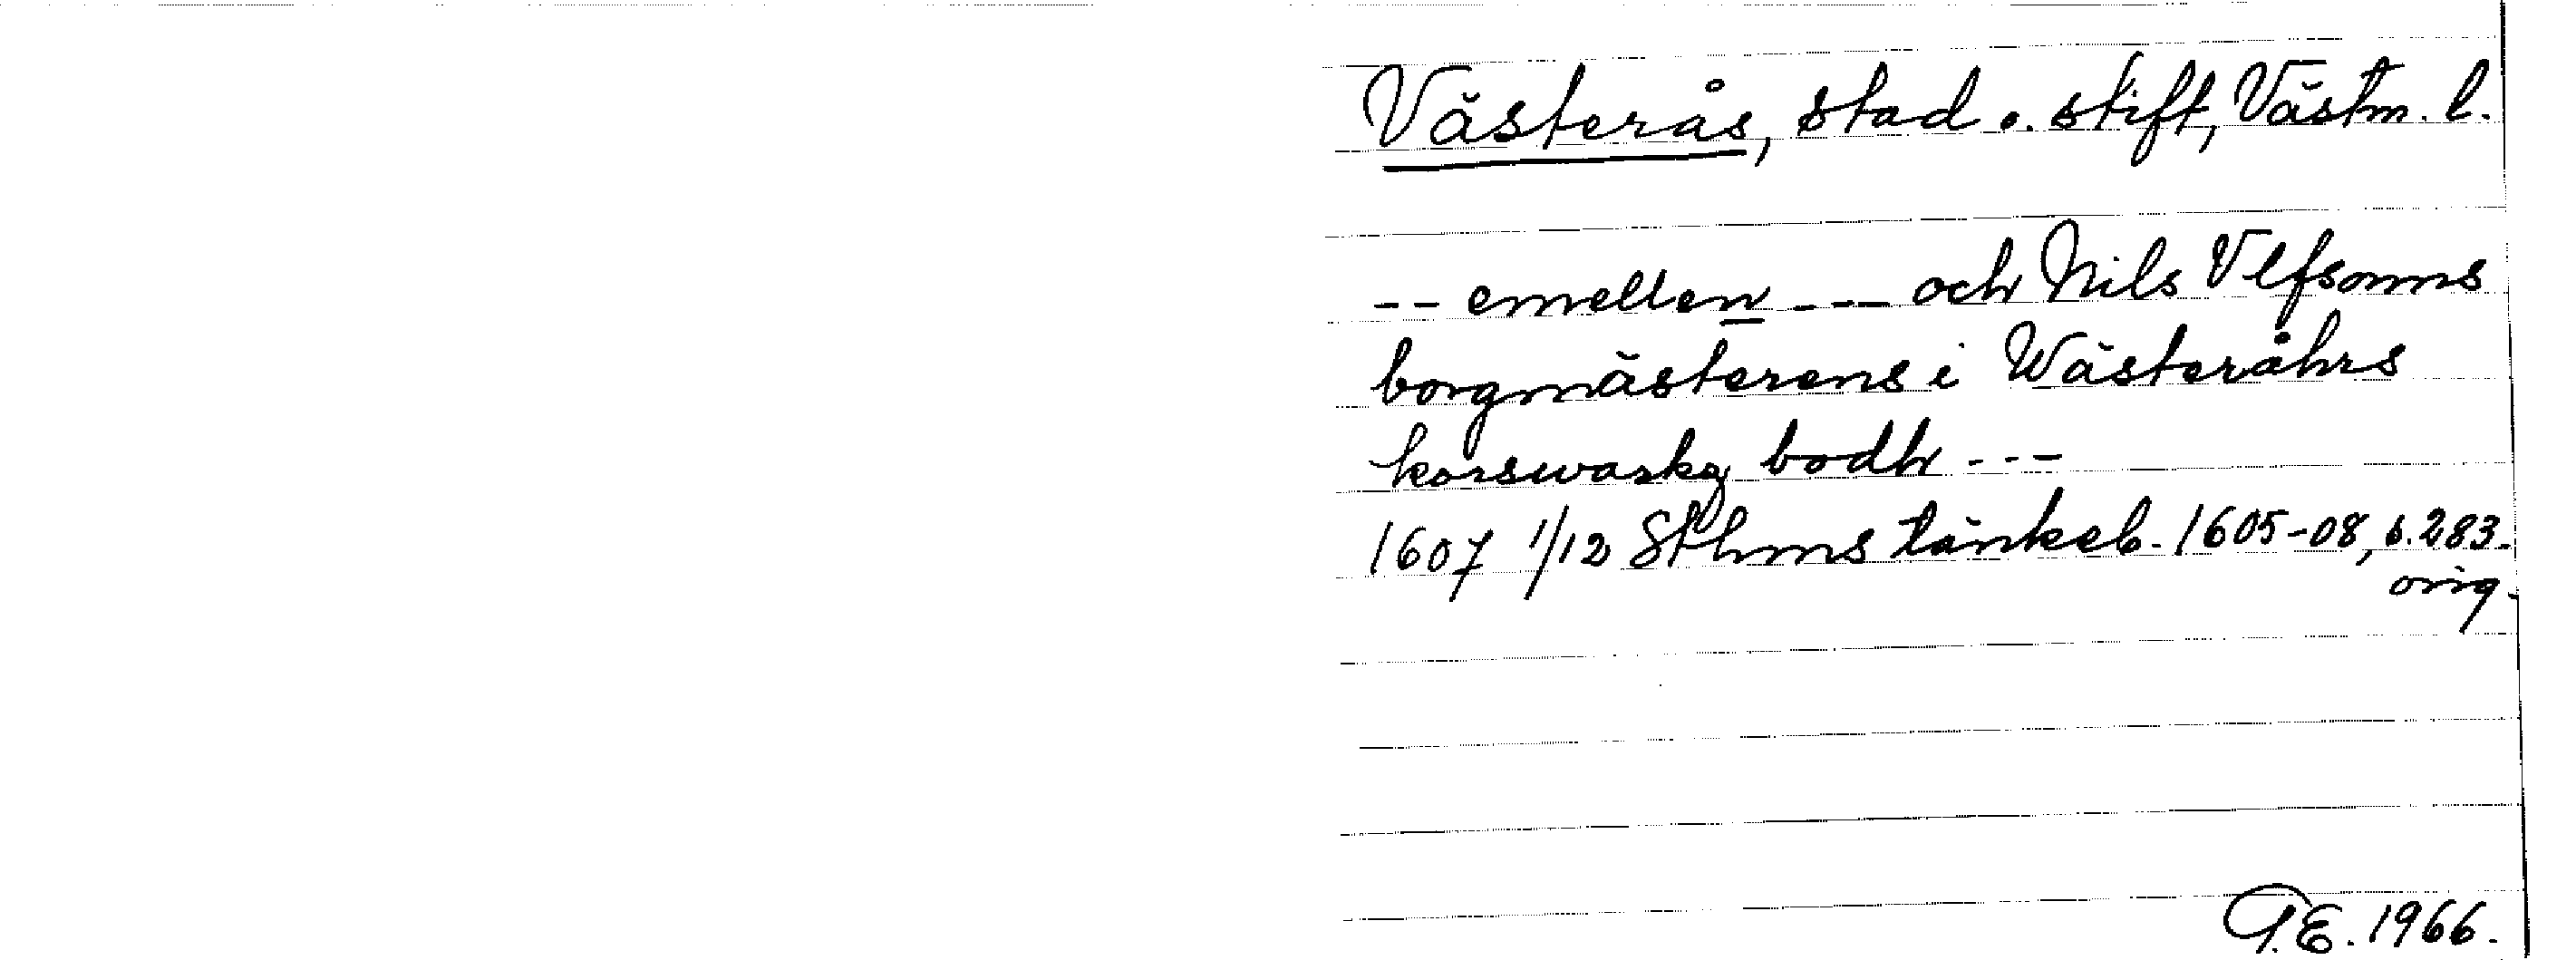 Västerås, stad o. stift, Västm. l.
-- emellen --- och Nils Vlfsonns
borgmästerens i Wästeråhrs
korswarkz bodh ---
1607 1/12 Sthms tänkeb. 1605-08, s. 283.
orig.
P.E. 1966.